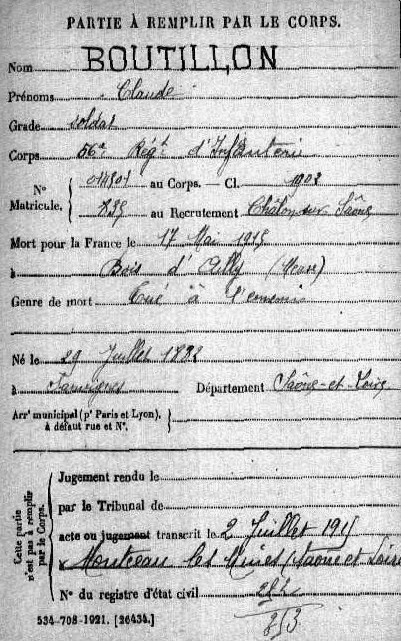 PARTIE À REMPLIR PAR LE CORPS.
Nom BOUTILLON
Prénoms Claude
Grade soldat
Corps 56e Regt d'Infanterie
No Matricule. { 014301 au Corps. — Cl. 1902
839 au Recrutement Châlon-sur-Saône
Mort pour la France le 17 Mai 1915
à Bois d'Ailly (Meuse)
Genre de mort Tué à l'ennemi
Né le 29 Juillet 1882
à Département Saône-et-Loire
Arrt municipal (pr Paris et Lyon), à défaut rue et No.
Cette partie n'est pas à remplir par le Corps.
Jugement rendu le
par le Tribunal de
acte ou jugement transcrit le 2 Juillet 1915
à Montceau les Mines (Saône et Loire
No du registre d'état civil
534-708-1921. [26434.]